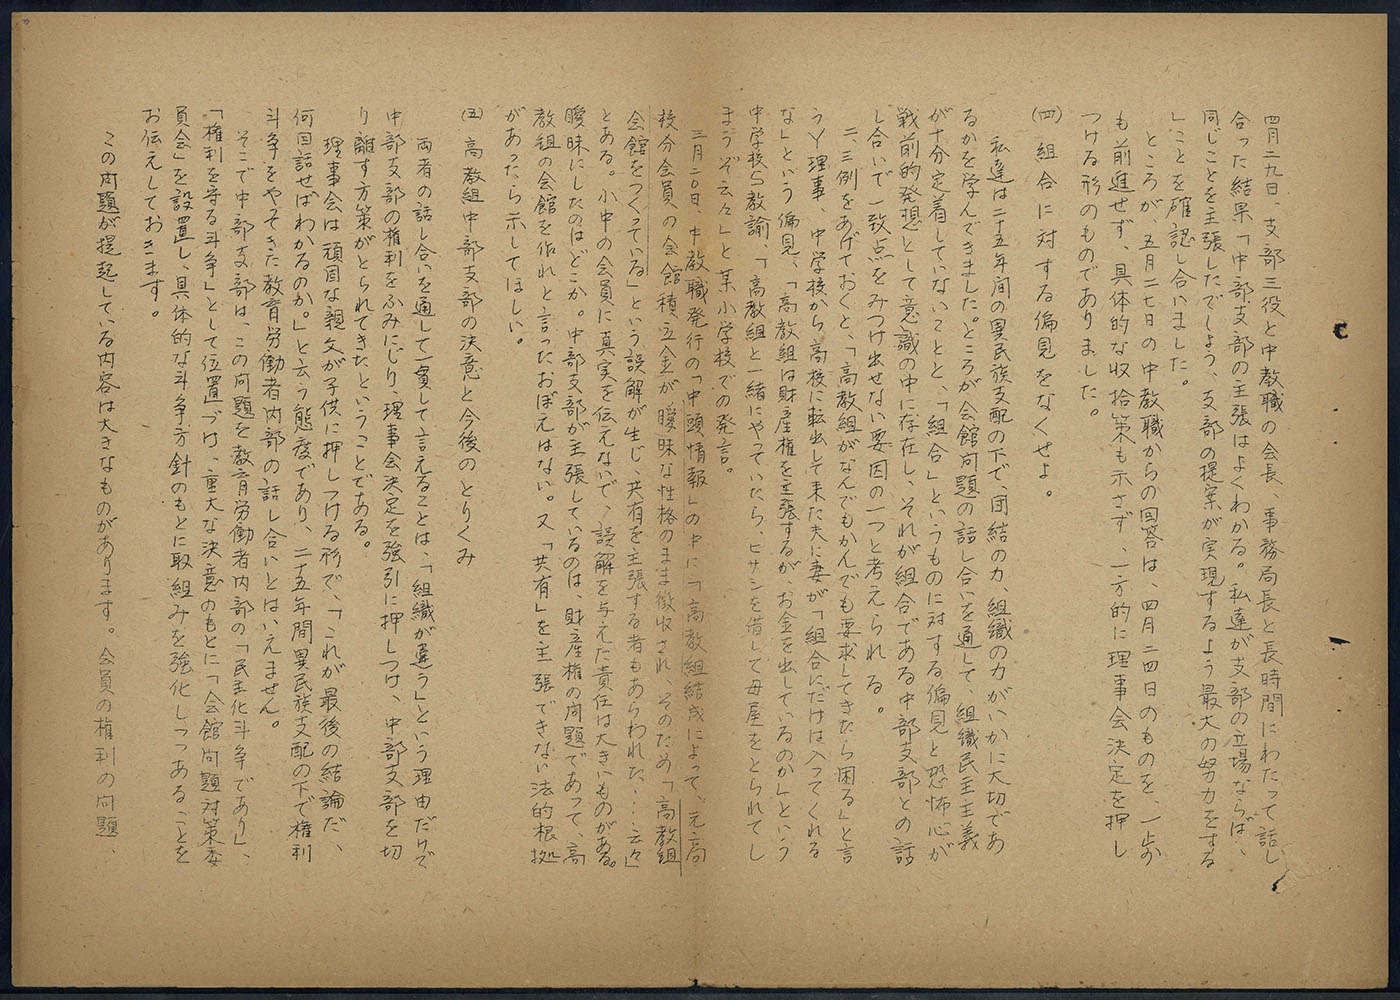 四月二九日、支部三役と中教職の会長、事務局長と長時間にわたって話し
合った結果「中部支部の主張はよくわかる。私達が支部の立場ならば、
同じことを主張したでしょう、支部の提案が実現するよう最大の努力をする
」ことを確認し合いました。
ところが、五月二七日の中教職からの回答は、四月二四日のものを、一歩か
も前進せず、具体的な収拾策も示さず、一方的に理事会決定を押し
つける形のものでありました。
(四) 組合に対する偏見をなくせよ。
私達は二十五年間の異民族支配の下で、団結の力、組織の力がいかに大切であ
るかを学んできました。ところが会館問題の話し合いを通して、組織民主主義
が十分定着していないことと、「組合」というものに対する偏見と恐怖心が
戦前的発想として意識の中に存在し、それが組合である中部支部との話
し合いで一致点をみつけ出せない要因の一つと考えられる。
二、三例をあげておくと、「高教組がなんでもかんでも要求してきたら困る」と言
うY理事、中学校から高校に転出して来た夫に妻が「組合にだけは入ってくれる
な」という偏見、「高教組は財産権を主張するが、お金を出しているのか」という
中学校S教諭、「高教組と一緒にやっていたら、ヒサシを借して母屋をとられてし
まうぞ云々」と某小学校での発言。
三月二〇日、中教職発行の「中頭情報」の中に「高教組結成によって、元高
校分会員の会館積立金が曖昧な性格のまま徴収され、そのため「高教組
会館をつくっている」という誤解が生じ、共有を主張する者もあらわれた…云々」
とある。小中の会員に真実を伝えないで、誤解を与えた責任は大きいものがある。
曖昧にしたのはどこか。中部支部が主張しているのは、財産権の問題であって、高
教組の会館を作れと言ったおぼえはない。又「共有」を主張できない法的根拠
があったら示してほしい。
(五) 高教組中部支部の決意と今後のとりくみ
両者の話し合いを通して一貫して言えることは、「組織が違う」という理由だけで
中部支部の権利をふみにじり、理事会決定を強引に押しつけ、中部支部を切
り離す方策がとられてきたということである。
理事会は頑固な親父が子供に押しつける形で、「これが最後の結論だ、
何回話せばわかるのか。」と云う態度であり、二十五年間異民族支配の下で権利
斗争をやってきた教育労働者内部の話し合いとはいえません。
そこで中部支部は、この問題を教育労働者内部の「民主化斗争であり」、
「権利を守る斗争」として位置づけ、重大な決意のもとに「会館問題対策委
員会」を設置し、具体的な斗争方針のもとに取組みを強化しつつあることを
お伝えしておきます。
この問題が提起している内容は大きなものがあります。会員の権利の問題、